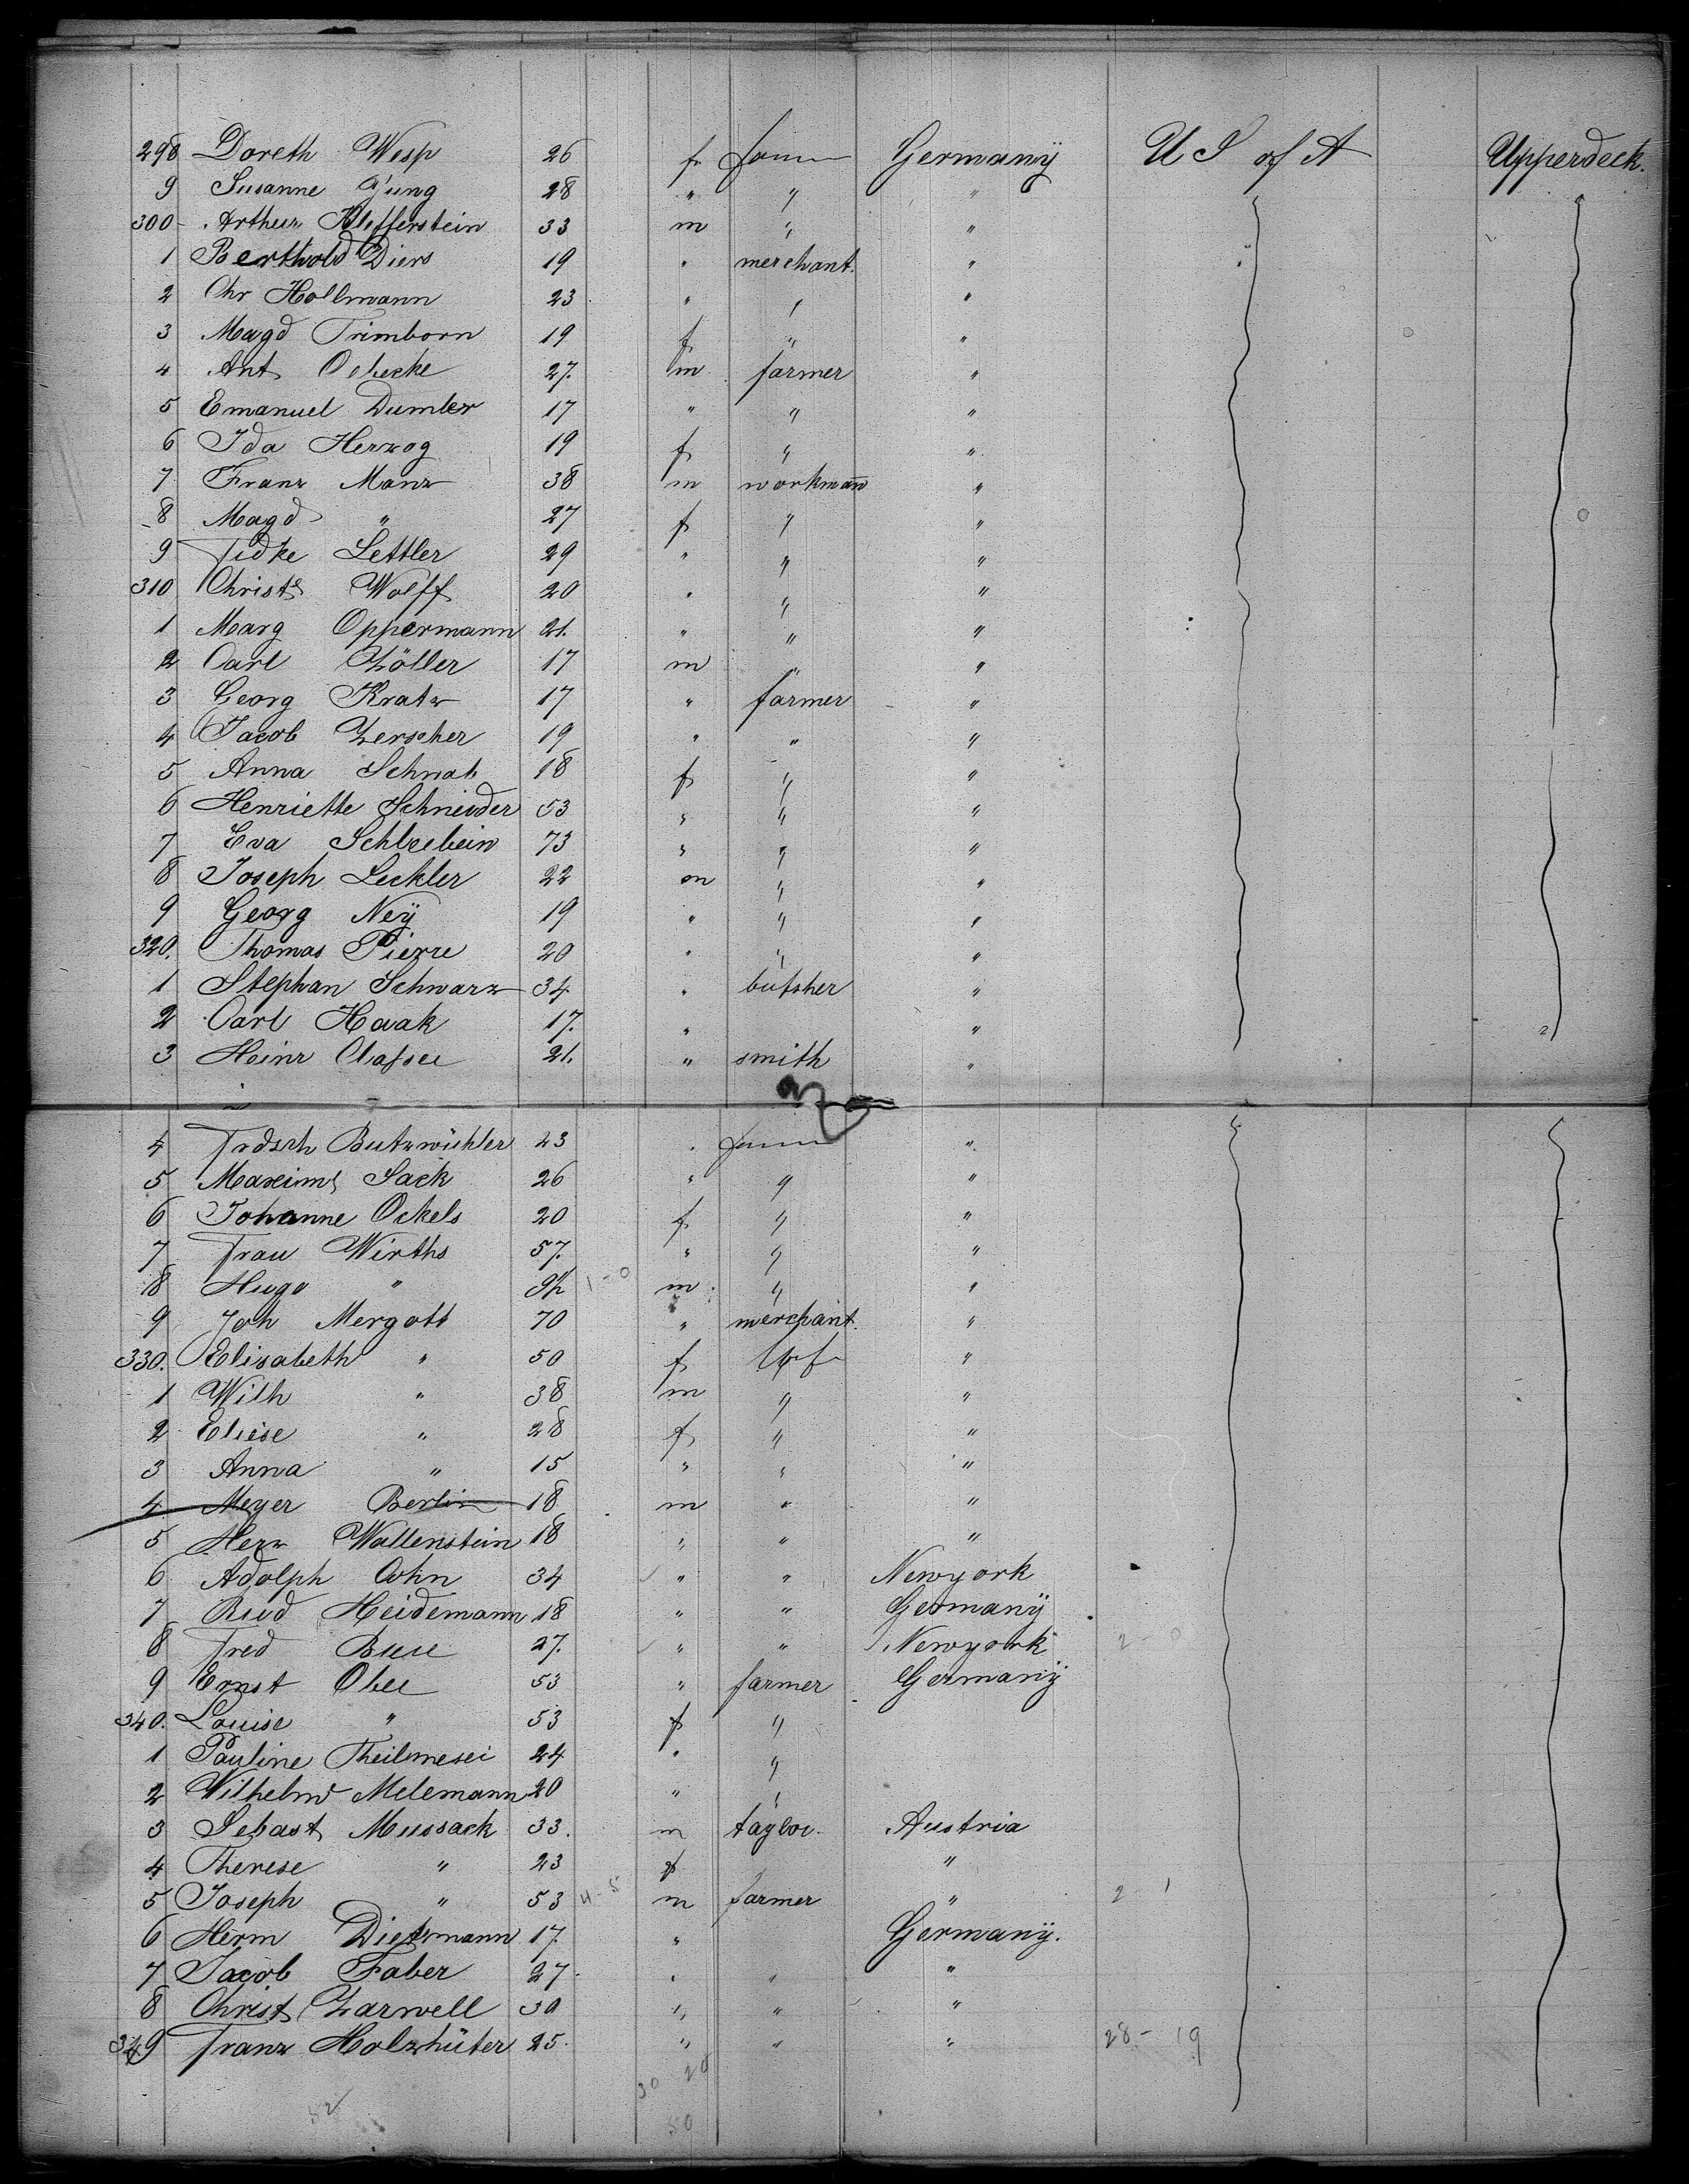 298 Doreth Wesp 26 f Germany U S of A Upperdeck.
9 Susanne Jung 28 " " "
300 Arthur Klefferstein 33 m " "
1 Berthold Diers 19 " merchant. "
2 Chr Hollmann 23 " " "
3 Magd Trimborn 19 f " "
4 Ant 27. m farmer "
5 Emanuel Dumler 17 " " "
6 Ida Herzog 19 f " "
7 Franz Manz 38 m workman "
8 Magd " 27 f " "
9 Lettler 29 " " "
310 Christ Wolff 20 " " "
1 Marg Oppermann 21. " " "
2 Carl Zöller 17 m " "
3 Georg Kratz 17 " farmer "
4 Jacob Zerscher 19 " " "
5 Anna Schwab 18 f " "
6 Henriette Schneider 53 " " "
7 Eva 73 " " "
8 Joseph Leckler 22 m " "
9 Georg Neÿ 19 " " "
320. Thomas Pierre 20 " " "
1 Stephan Schwarz 34 " butsher "
2 Carl Haak 17. " "
3 Heinr 21. " smith "
4 23 " "
5 Sack 26 " " "
6 Johanne Ockels 20 f " "
7 Frau Wirths 57. " " "
8 Hugo " 1-0 m " "
9 Joh Mergott 70 " merchant. "
330. Elisabeth " 50 f "
1 Wilh " 38 m " "
2 Eliese " 28 f " "
3 Anna " 15 " " "
4 Meyer Berlin 18 m " "
5 Herz Wallenstein 18 " " "
6 Adolph Cohn 34 " " Newyork
7 Rud Heidemann 18 " " Germanÿ
8 Fred 27. " " Newyork 2-0
9 Ernst 53 " farmer Germanÿ
340. Louise " 53 f "
1 Pauline 24 " "
2 Wilhelm Melemann 20 " "
3 Sebast Mussack 33. m taylor. Austria
4 Therese " 23 f "
5 Joseph " 53 4-5 m farmer " 2-1
6 Herm Dietzmann 17. " Germanÿ.
7 Jacob Faber 27 " " "
8 Christ Zarwell 30 " " "
349 Franz Holzhüter 25. " " " 28-19
30 20
52 50